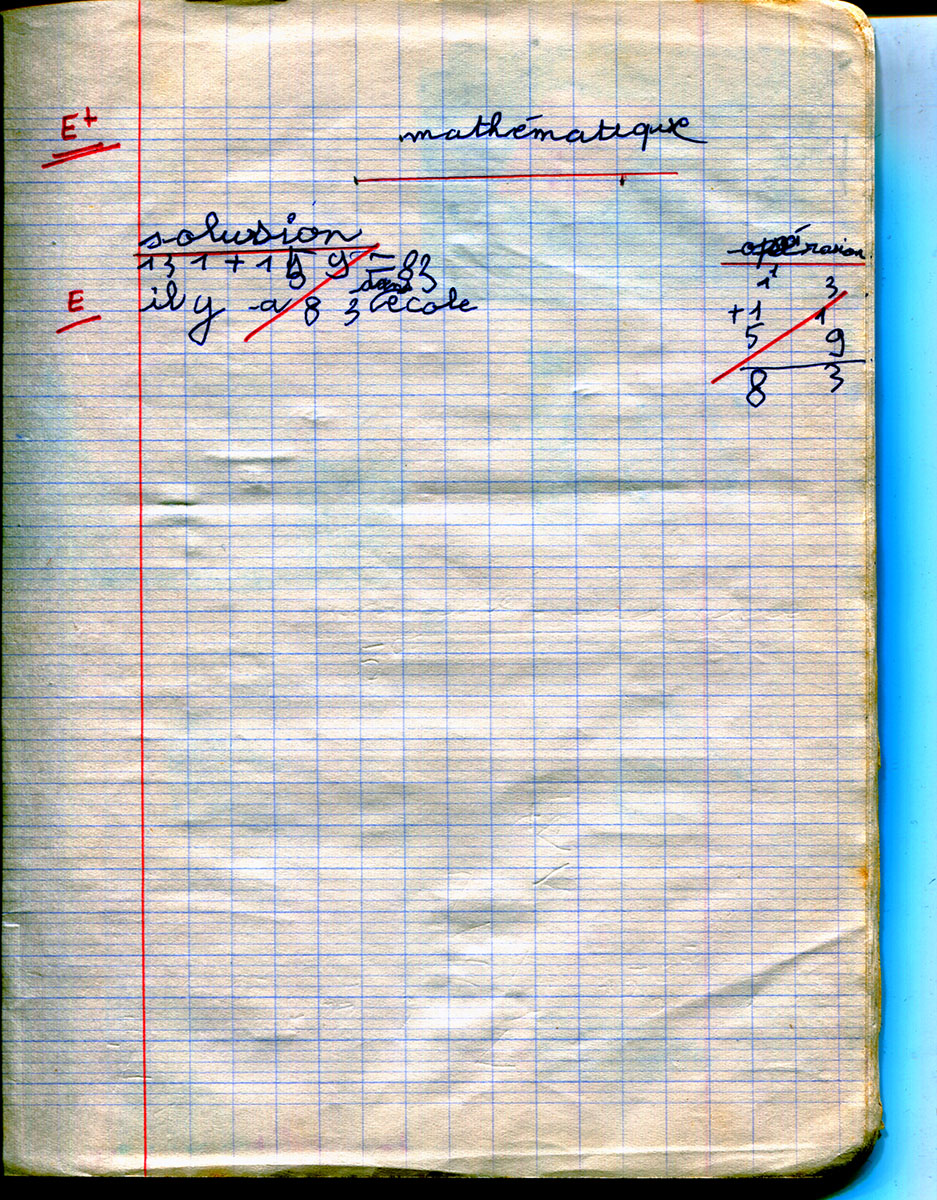 E+
mathématique
solusion
131+1 5 9 = 83
E
il y a 83 dans l'école
opérasion
1 3
+1 1
5 9
8 3